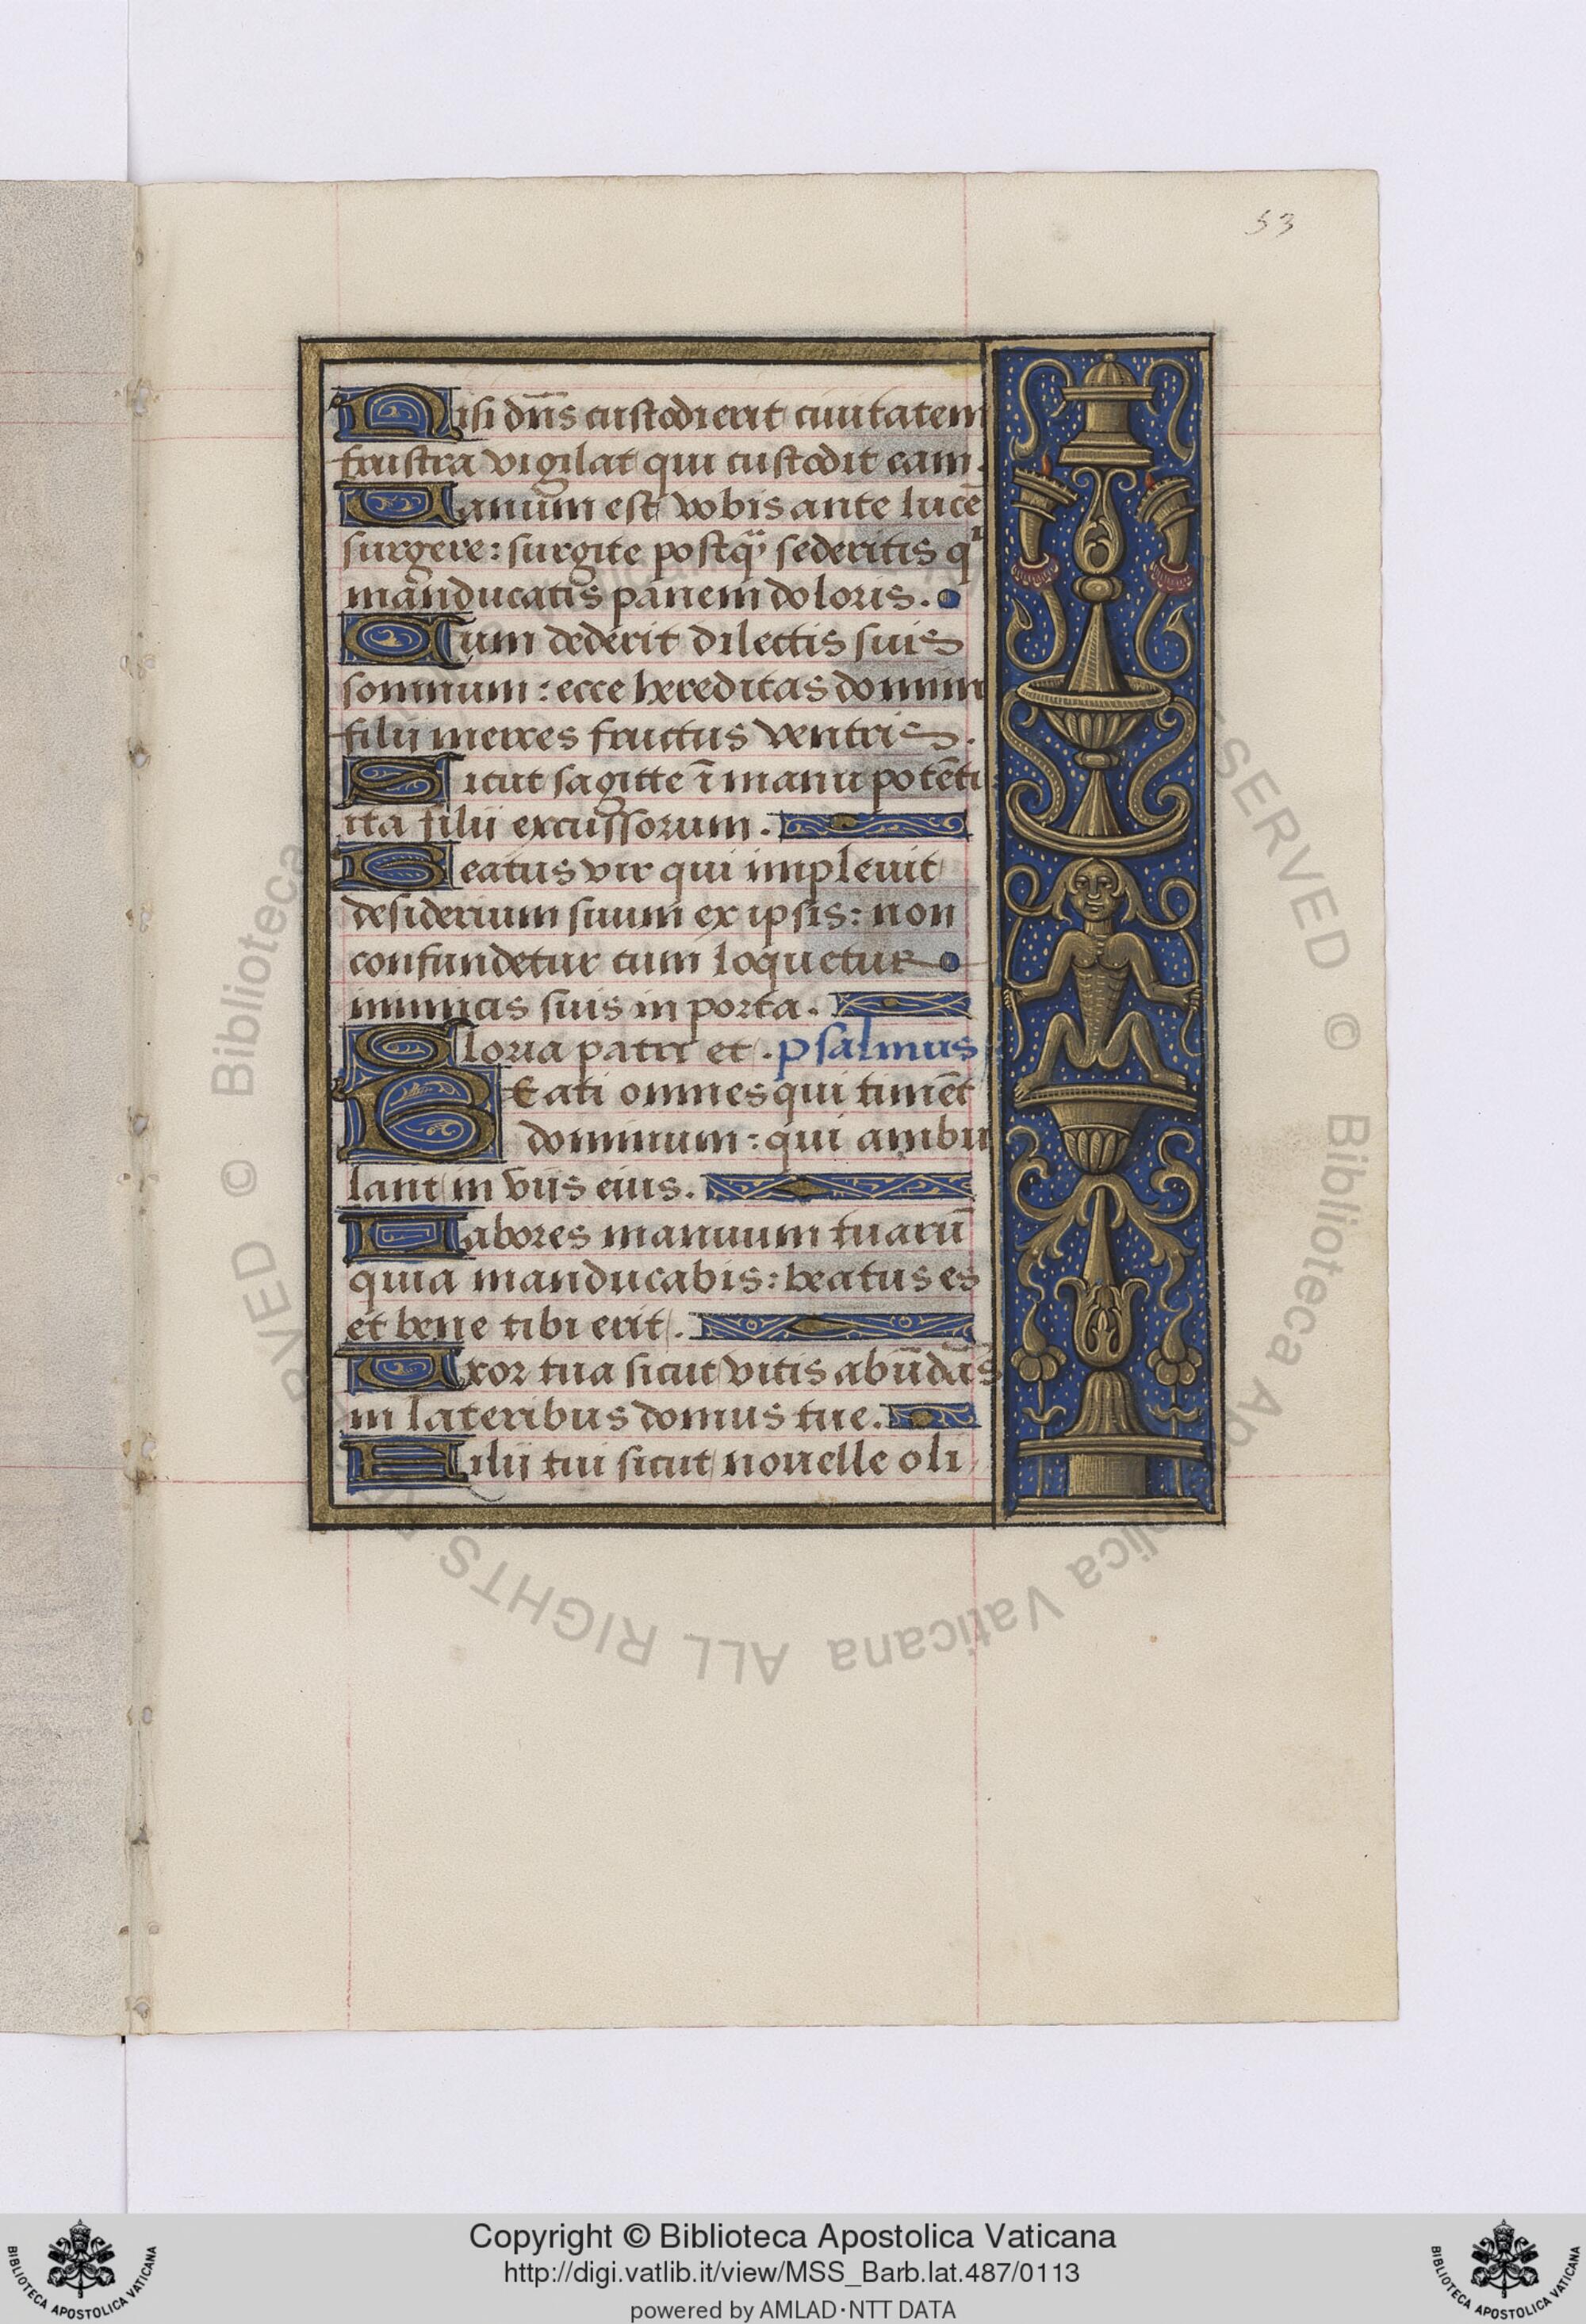 53
Nisi dn̄s custodierit ciuitatem
frustra vigilat qui custodit eam.
Uanum est vobis ante lucē
surgere: surgite postqᷓ sederitis qͥ
manducatis panem doloris.
Cum dederit dilectis suis
somnum: ecce hereditas domini
filii merces fructus ventris.
Sicut sagitte ī manu potēti
ita filii excussorum.
Beatus vir qui impleuit
desiderium suum ex ipsis: non
confundetur cum loquetur
inimicis suis in porta.
Gloria patri et. psalmus
BEati omnes qui timēt
dominum: qui ambu
lant in viis eius.
Labores manuum tuarū
quia manducabis: beatus es
et bene tibi erit.
Uxor tua sicut vitis abūdās
in lateribus domus tue.
Filii tui sicut nouelle oli
© Biblioteca Apostolica Vaticana ALL RIGHTS RESERVED
© Biblioteca
Copyright © Biblioteca Apostolica Vaticana
http://digi.vatlib.it/view/MSS_Barb.lat.487/0113
powered by AMLAD·NTT DATA
BIBLIOTECA APOSTOLICA VATICANA
BIBLIOTECA APOSTOLICA VATICANA